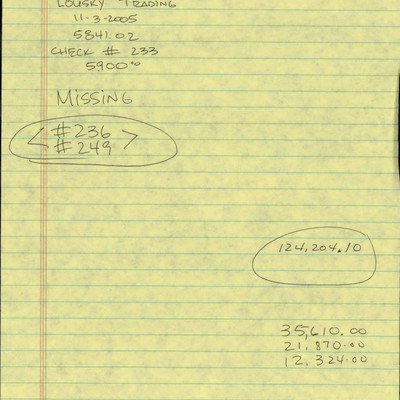 LOUSKY TRADING
11-3-2005
5841.02
CHECK # 233
5900.00
MISSING
< #236 >
#249
124,204.10
35,610.00
21,870.00
12,324.00